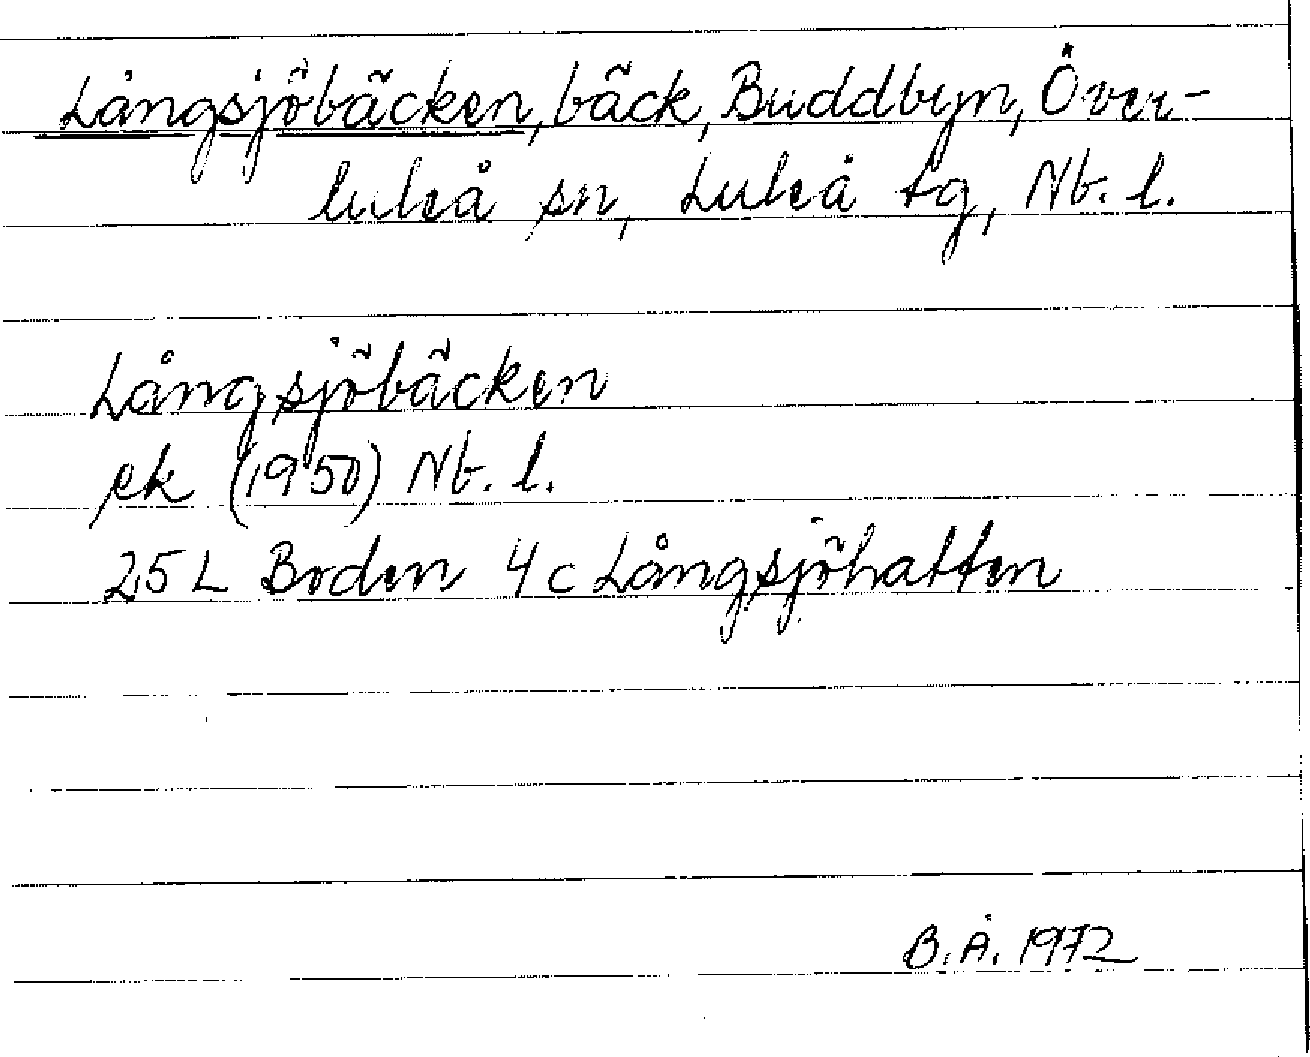 Långsjöbäcken, bäck, Buddbyn, Över-
luleå sn, Luleå tg, Nb. l.
Långsjöbäcken
ek (1950) Nb. l.
25 L Boden 4 c Långsjöhatten
B.Å. 1972